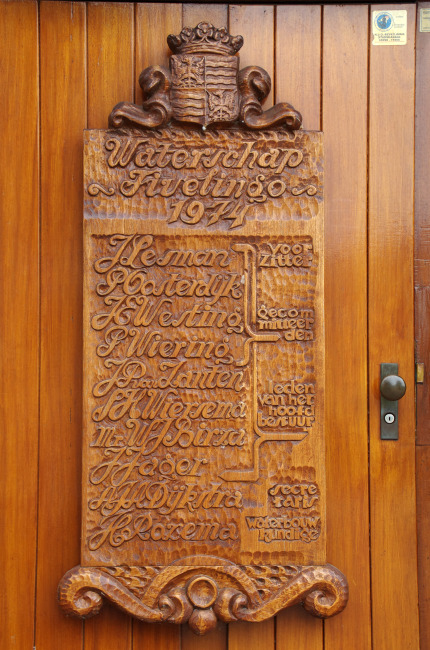 Waterschap
Fivelingo
1974
J Lesman
P Oosterdijk
J E Westing
P Wiering
J R v Zanten
S K Wiersema
Mr W J Birza
J Jager
A W Dijkstra
H Roxema
voor
zitter
gecom
mitteer
den
leden
van het
hoofd
bestuur
secre
taris
waterbouw
kundige